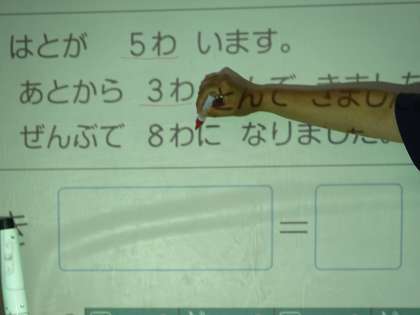 はとが 5わ います。
あとから 3わ とんで きました
ぜんぶで 8わに なりました。
=